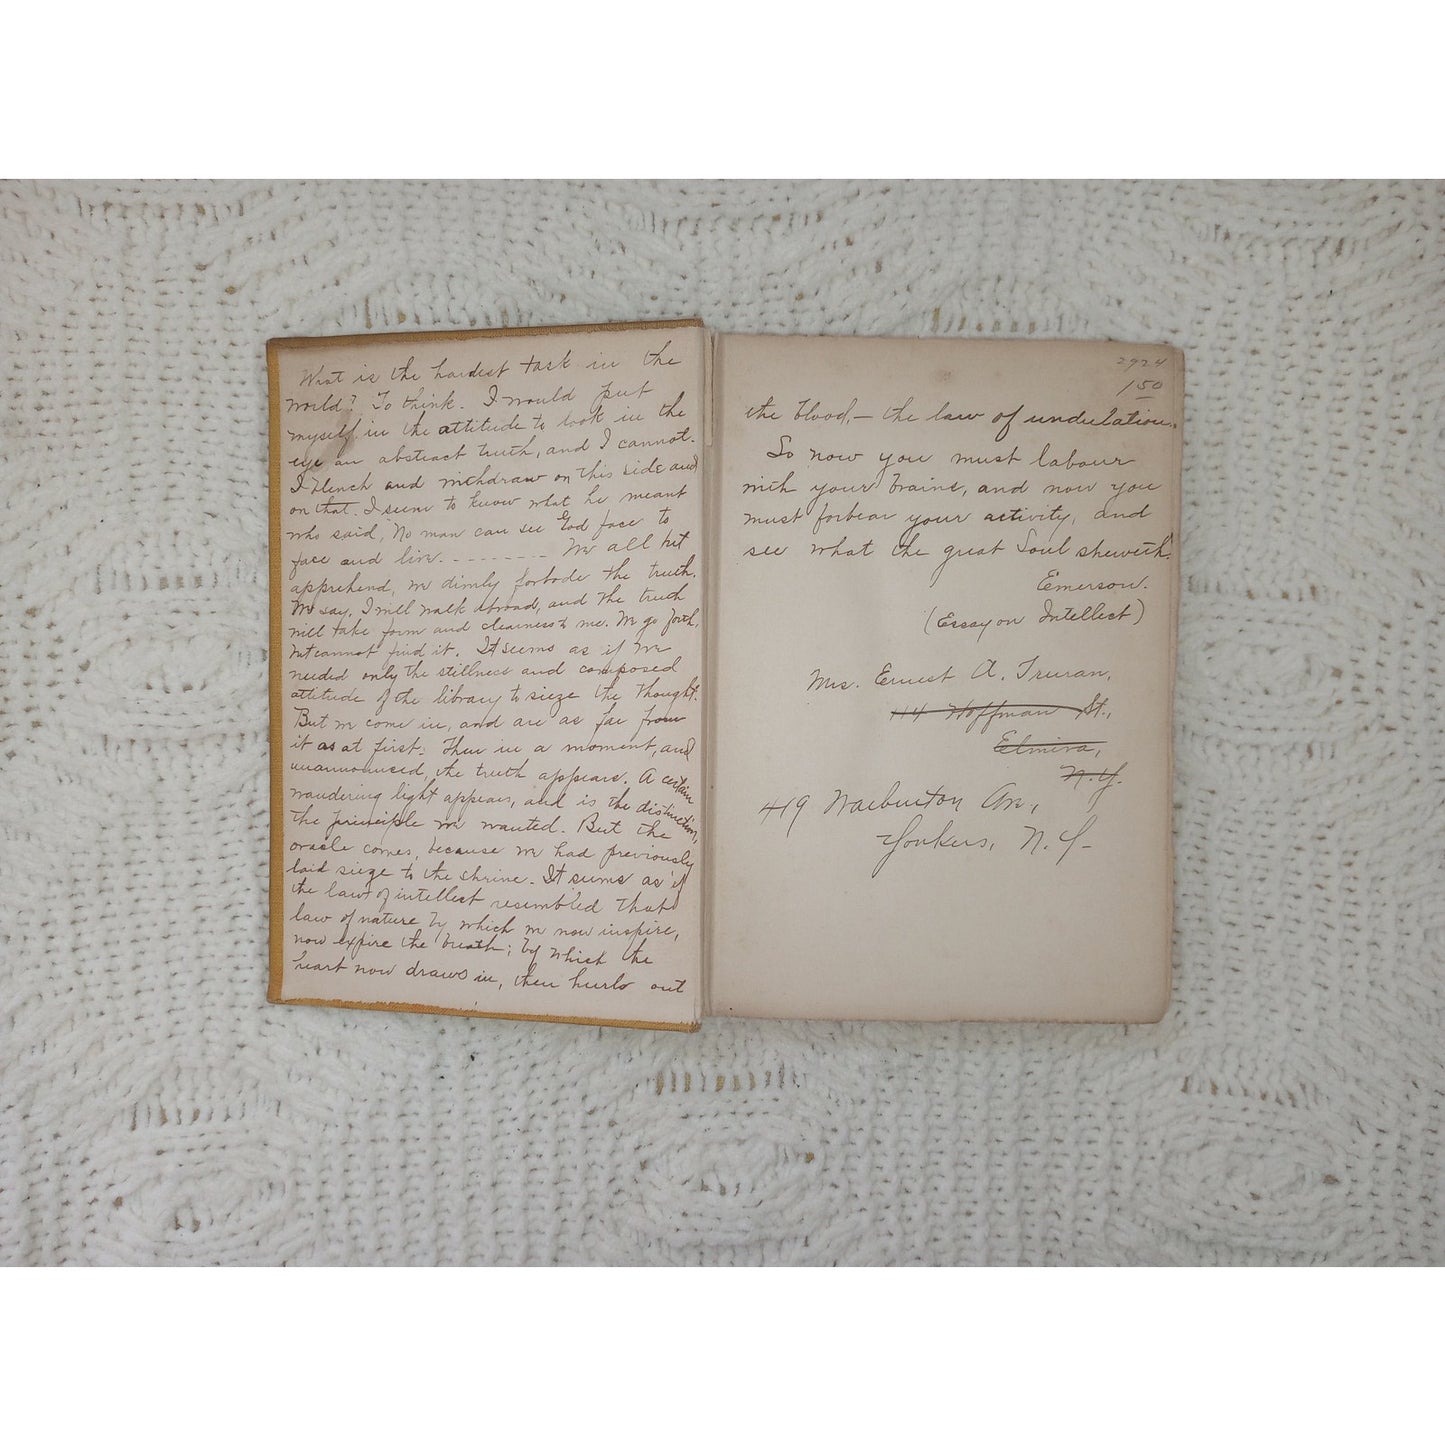 What is the hardest task in the
world? To think. I would put
myself in the attitude to look in the
eye an abstract truth, and I cannot.
I blench and withdraw on this side and
on that. I seem to know what he meant
who said, No man can see God face to
face and live. - - - - - - - - We all but
apprehend, we dimly forbode the truth.
We say, I will walk abroad, and the truth
will take form and clearness to me. We go forth,
but cannot find it. It seems as if we
needed only the stillness and composed
attitude of the library to sieze the thought.
But we come in, and are as far from
it as at first. Then in a moment, and
unannounced, the truth appears. A certain
wandering light appears, and is the distinction,
the principle we wanted. But the
oracle comes, because we had previously
laid siege to the shrine. It seems as if
the law of intellect resembled that
law of nature by which we now inspire,
now expire the breath; by which the
heart now draws in, then hurls out
2924
150
the blood, – the law of undulation.
So now you must labour
with your brains, and now you
must forbear your activity, and
see what the great Soul sheweth.
Emerson.
(Essay on Intellect)
Mrs. Ernest A. Truran,
114 Hoffman St.,
Elmira,
N.Y.
419 Warburton Av.,
Yonkers, N.Y-